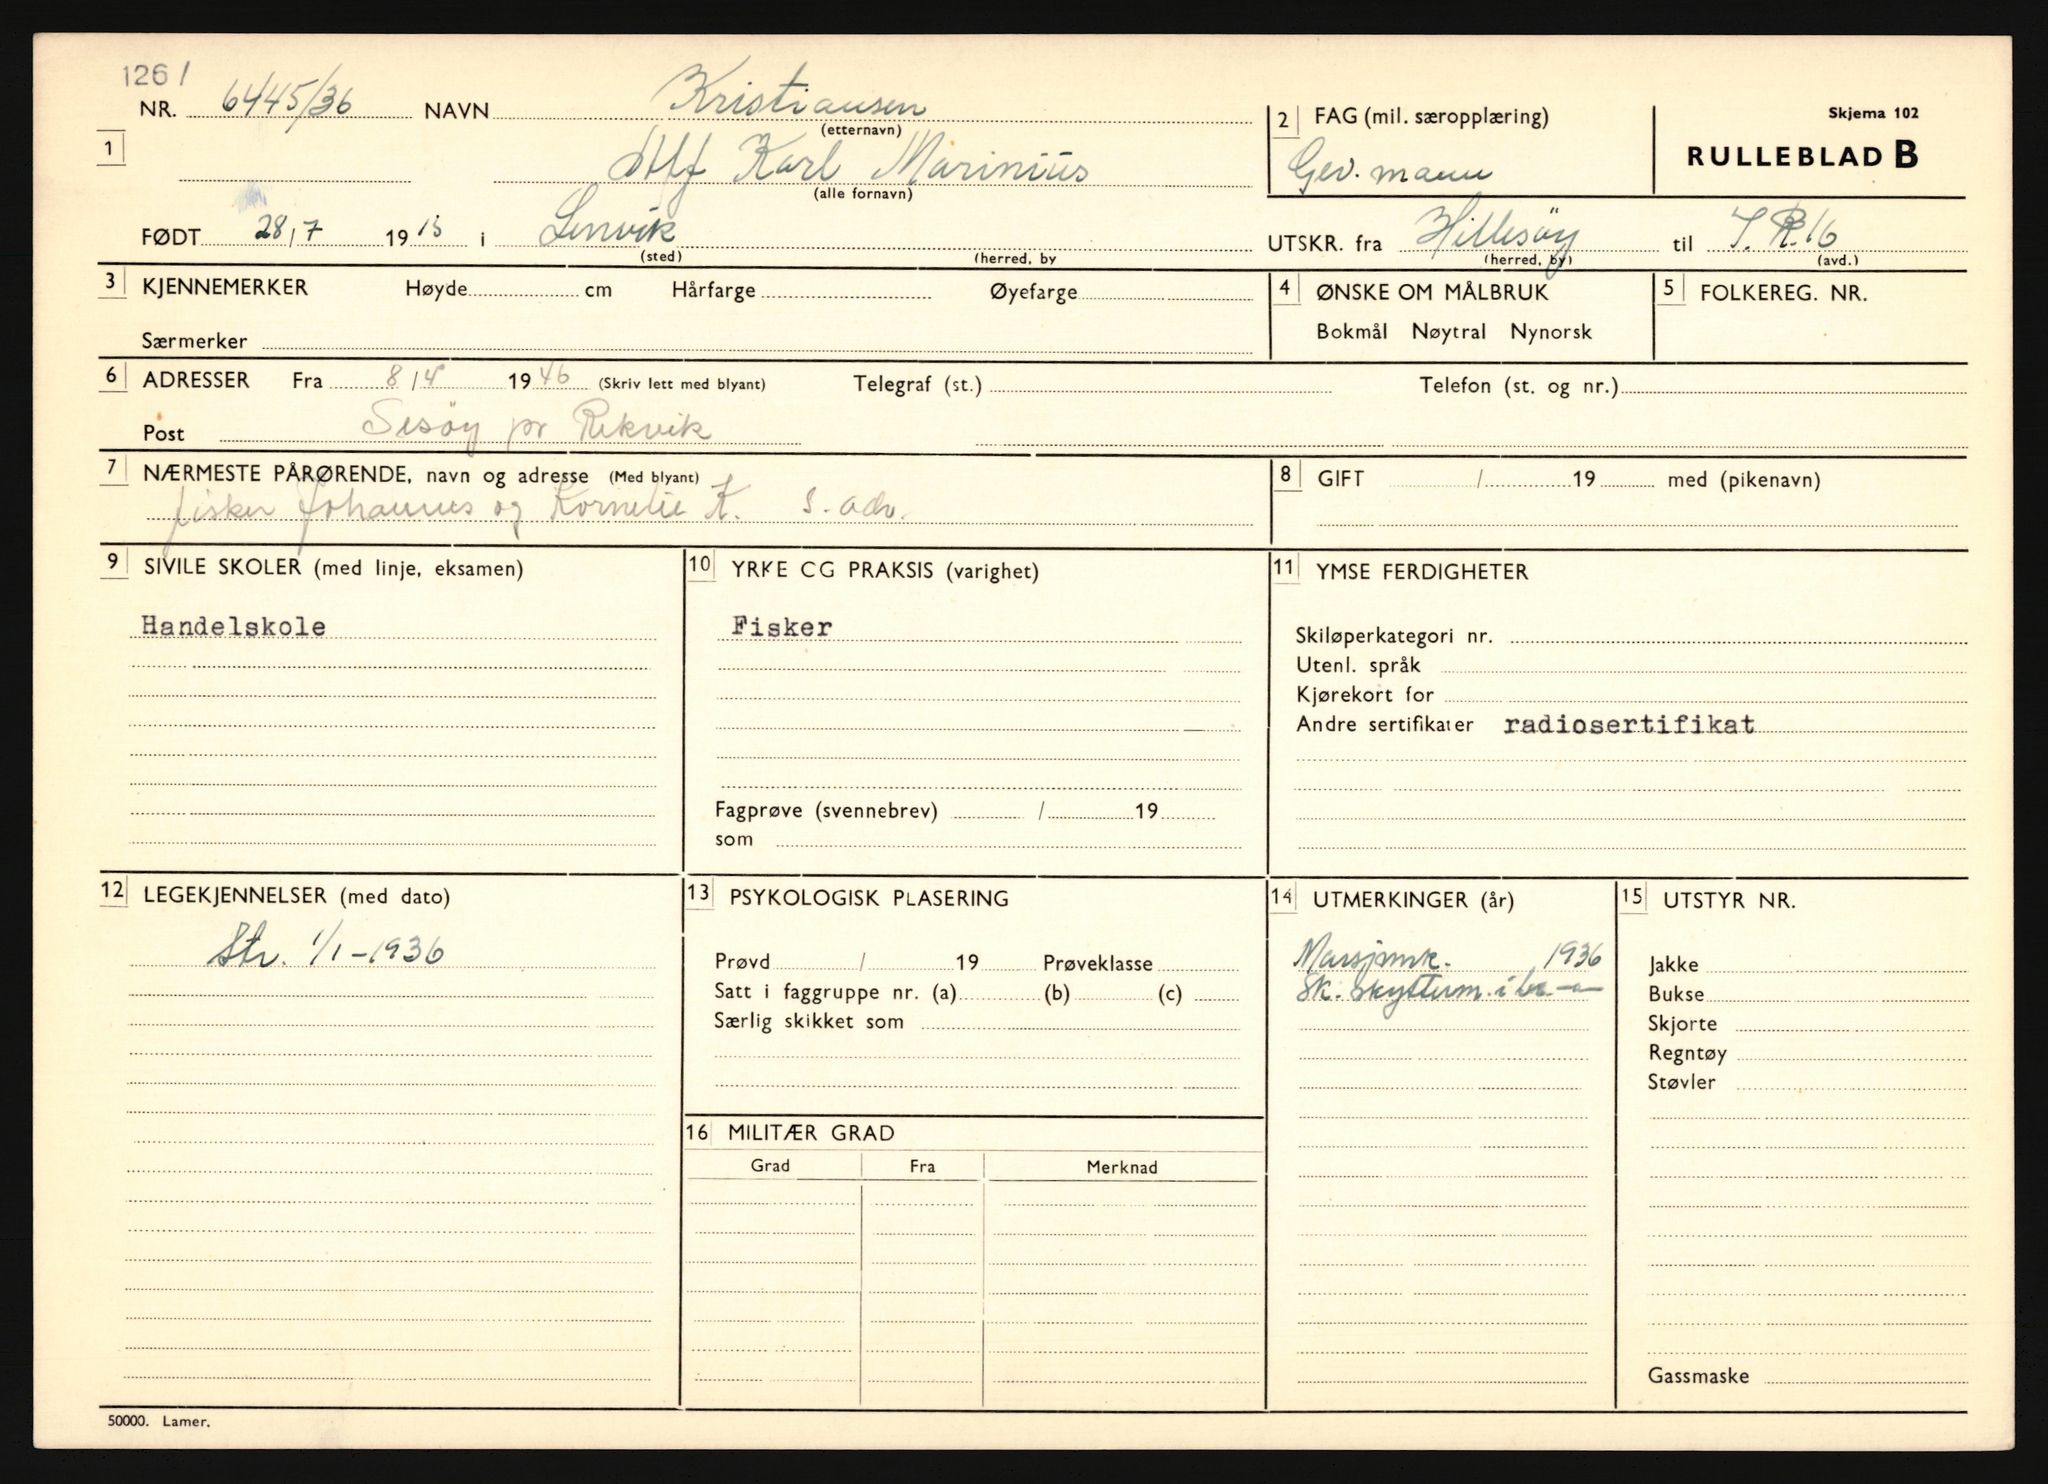 1261
NR. 6445/36 NAVN Kristiansen
(etternavn)
1 Alf Karl Marinius
(alle fornavn)
FØDT 28/7 1915 i Lenvik
(sted) (herred, by
2 FAG (mil. særopplæring)
Gev. mann
Skjema 102
RULLEBLAD B
UTSKR. fra Hillesøy til I.R.16
(herred, by) (avd.)
3 KJENNEMERKER Høyde cm Hårfarge Øyefarge
Særmerker
4 ØNSKE OM MÅLBRUK
Bokmål Nøytral Nynorsk
5 FOLKEREG. NR.
6 ADRESSER Fra 8/4 1946 (Skriv lett med blyant) Telegraf (st.) Telefon (st. og nr.)
Post Sesøy pr Rekvik
7 NÆRMESTE PÅRØRENDE, navn og adresse (Med blyant)
fisker Johannes og Kornelie K. S. adr.
8 GIFT / 19 med (pikenavn)
9 SIVILE SKOLER (med linje, eksamen)
Handelskole
10 YRKE CG PRAKSIS (varighet)
Fisker
Fagprøve (svennebrev) / 19
som
11 YMSE FERDIGHETER
Skiløperkategori nr.
Utenl. språk
Kjørekort for
Andre sertifikater radiosertifikat
12 LEGEKJENNELSER (med dato)
Str. 1/1-1936
13 PSYKOLOGISK PLASERING
Prøvd / 19 Prøveklasse
Satt i faggruppe nr. (a) (b) (c)
Særlig skikket som
14 UTMERKINGER (år)
Marsjmrk. 1936
Sk. skytterm. i br. -"-
15 UTSTYR NR.
Jakke
Bukse
Skjorte
Regntøy
Støvler
Gassmaske
16 MILITÆR GRAD
Grad Fra Merknad
50000. Lamer.